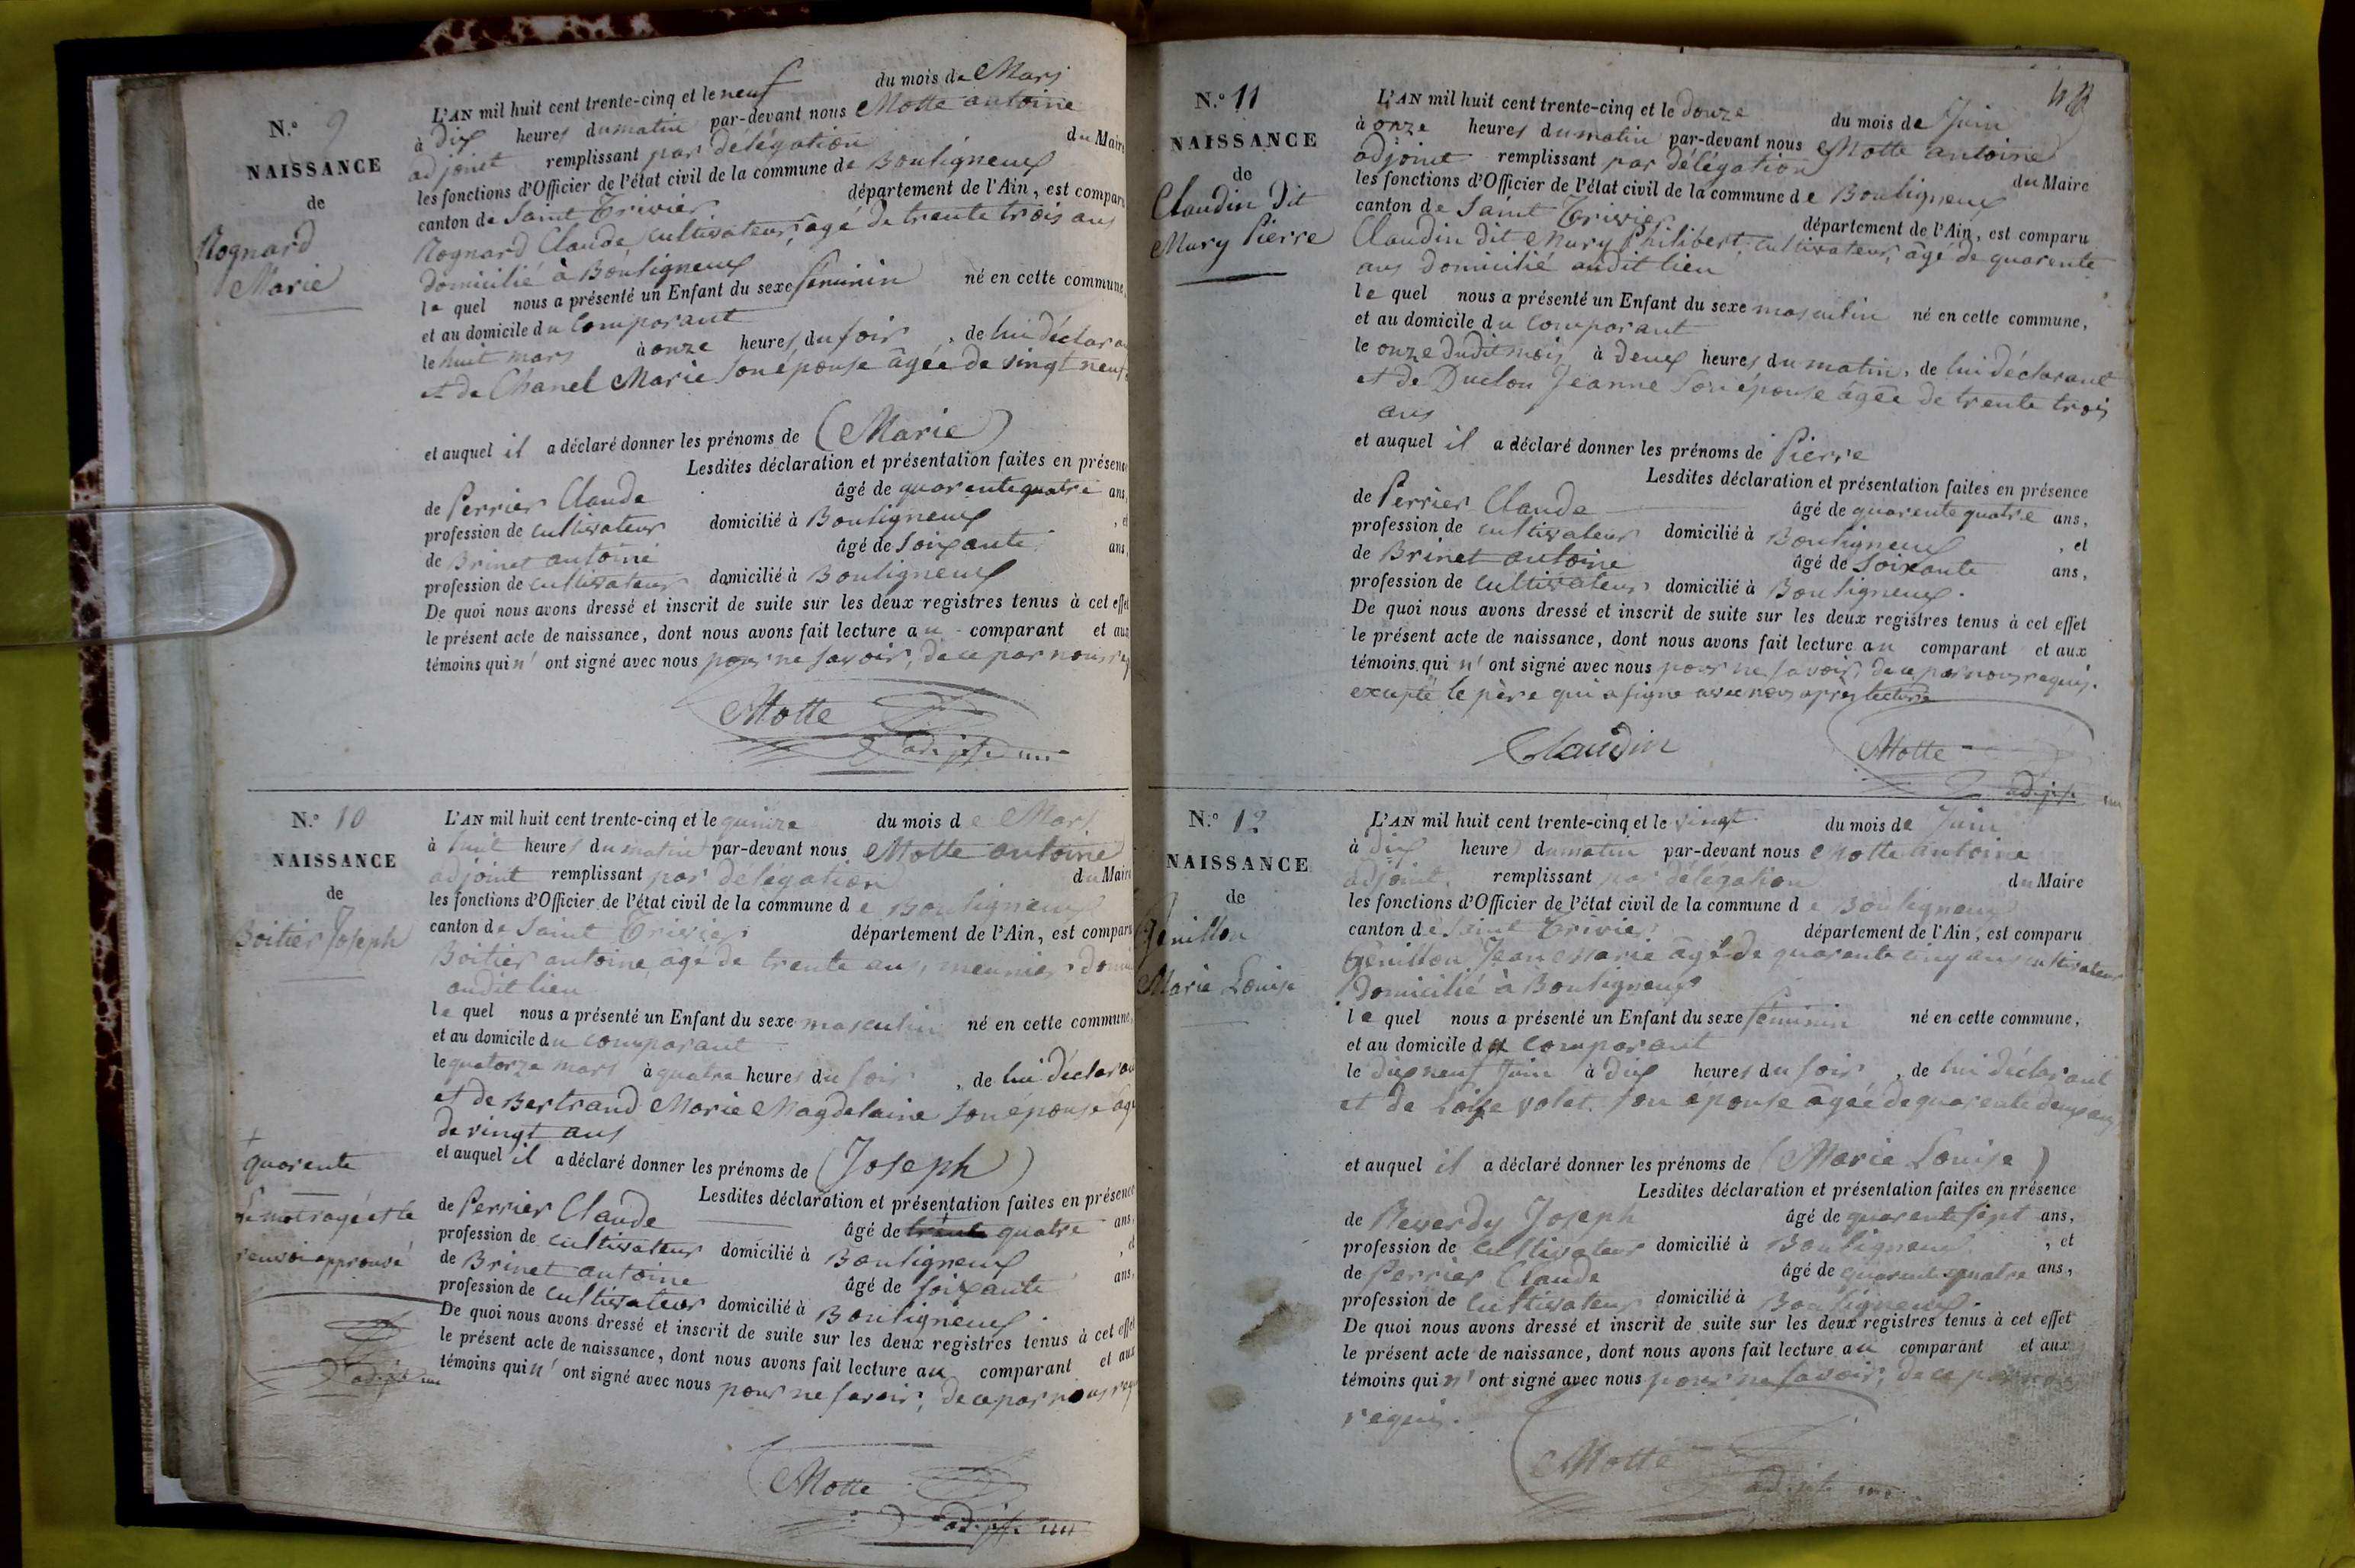 N.° 9
NAISSANCE
de
Rognard
Marie
L'AN mil huit cent trente-cinq et le neuf du mois de Mars
à dix heures du matin par-devant nous Motte antoine
adjoint remplissant par délégation du Maire
les fonctions d'Officier de l'état civil de la commune de Bouligneux
canton de Saint Trivier département de l'Ain, est comparu
Rognard Claude cultivateur, âgé de trente trois ans
domicilié à Bouligneux
le quel nous a présenté un Enfant du sexe féminin né en cette commune,
et au domicile du comparant
le huit mars à onze heures du soir, de lui déclara
et de Chanel Marie son épouse âgée de vingt neuf
et auquel il a déclaré donner les prénoms de (Marie)
Lesdites déclaration et présentation faites en présence
de Perrier Claude âgé de quarente quatre ans,
profession de cultivateur domicilié à Bouligneux, et
de Brinet antoine âgé de soixante ans,
profession de cultivateur domicilié à Bouligneux
De quoi nous avons dressé et inscrit de suite sur les deux registres tenus à cet effet
le présent acte de naissance, dont nous avons fait lecture au comparant et aux
témoins qui n' ont signé avec nous pour ne savoir, de ce par nous req
Motte
N.° 10
NAISSANCE
de
Boitier Joseph
L'AN mil huit cent trente-cinq et le quinze du mois de Mars
à huit heures du matin par-devant nous Motte antoine
adjoint remplissant par délégation du Maire
les fonctions d'Officier de l'état civil de la commune de Bouligneux
canton de Saint Trivier département de l'Ain, est comparu
Boitier antoine, âgé de trente ans, meunier, domi
audit lieu
le quel nous a présenté un Enfant du sexe masculin né en cette commune,
et au domicile du comparant
le quatorze mars à quatre heures du soir, de lui déclara
et de Bertrand Marie Magdelaine son épouse âgé
de vingt ans
et auquel il a déclaré donner les prénoms de (Joseph)
Lesdites déclaration et présentation faites en présence
de Perrier Claude âgé de trente quatre ans,
profession de cultivateur domicilié à Bouligneux, et
de Brinet antoine âgé de soixante ans,
profession de cultivateur domicilié à Bouligneux
De quoi nous avons dressé et inscrit de suite sur les deux registres tenus à cet effet
le présent acte de naissance, dont nous avons fait lecture au comparant et aux
témoins qui n' ont signé avec nous pour ne savoir, de ce par nous req
quarente
Le mot rayé et le
renvoi approuvé
Motte
N.° 11
NAISSANCE
de
Claudin dit
Mury Pierre
L'AN mil huit cent trente-cinq et le douze du mois de Juin
à onze heures du matin par-devant nous Motte antoine
adjoint remplissant par délégation du Maire
les fonctions d'Officier de l'état civil de la commune de Bouligneux
canton de Saint Trivier département de l'Ain, est comparu
Claudin dit Mury Philibert, cultivateur, âgé de quarente
ans domicilié audit lieu
le quel nous a présenté un Enfant du sexe masculin né en cette commune,
et au domicile du comparant
le onze dudit mois, à deux heures du matin, de lui déclarant
et de Duclou Jeanne son épouse âgée de trente trois
ans
et auquel il a déclaré donner les prénoms de Pierre
Lesdites déclaration et présentation faites en présence
de Perrier Claude âgé de quarente quatre ans,
profession de cultivateur domicilié à Bouligneux, et
de Brinet antoine âgé de soixante ans,
profession de cultivateur domicilié à Bouligneux.
De quoi nous avons dressé et inscrit de suite sur les deux registres tenus à cet effet
le présent acte de naissance, dont nous avons fait lecture au comparant et aux
témoins qui n' ont signé avec nous pour ne savoir, de ce par nous requis.
excepté le père qui a signé avec nous après lecture
Claudin Motte
N.° 12
NAISSANCE
de
Génillon
Marie Louise
L'AN mil huit cent trente-cinq et le vingt du mois de Juin
à dix heures du matin par-devant nous Motte Antoine
adjoint remplissant par délégation du Maire
les fonctions d'Officier de l'état civil de la commune de Bouligneux
canton de Saint Trivier département de l'Ain, est comparu
Génillon Jean Marie âgé de quarente cinq ans cultivateur
domicilié à Bouligneux
le quel nous a présenté un Enfant du sexe féminin né en cette commune,
et au domicile du comparant
le dix neuf Juin à dix heures du soir, de lui déclarant
et de volet son épouse âgée de quarente deux ans
et auquel il a déclaré donner les prénoms de (Marie Louise)
Lesdites déclaration et présentation faites en présence
de Reverdy Joseph âgé de quarente sept ans,
profession de cultivateur domicilié à Bouligneux, et
de Perrier Claude âgé de quarente quatre ans,
profession de cultivateur domicilié à Bouligneux.
De quoi nous avons dressé et inscrit de suite sur les deux registres tenus à cet effet
le présent acte de naissance, dont nous avons fait lecture au comparant et aux
témoins qui n' ont signé avec nous pour ne savoir, de ce par nous
requis.
Motte